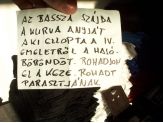 AZ BASSZA SZÁJBA
A KURVA ANYJÁT
AKI ELLOPTA A IV.
EMELETRŐL A HÁLÓ-
BŐRÖNDÖT. ROHADJON
EL A KEZE. ROHADT
PARASZTJÁNAK.